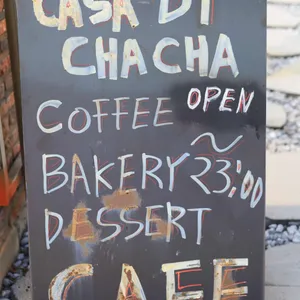 CASA DI
CHACHA
COFFEE OPEN
BAKERY ~23:00
DESSERT
CAFE